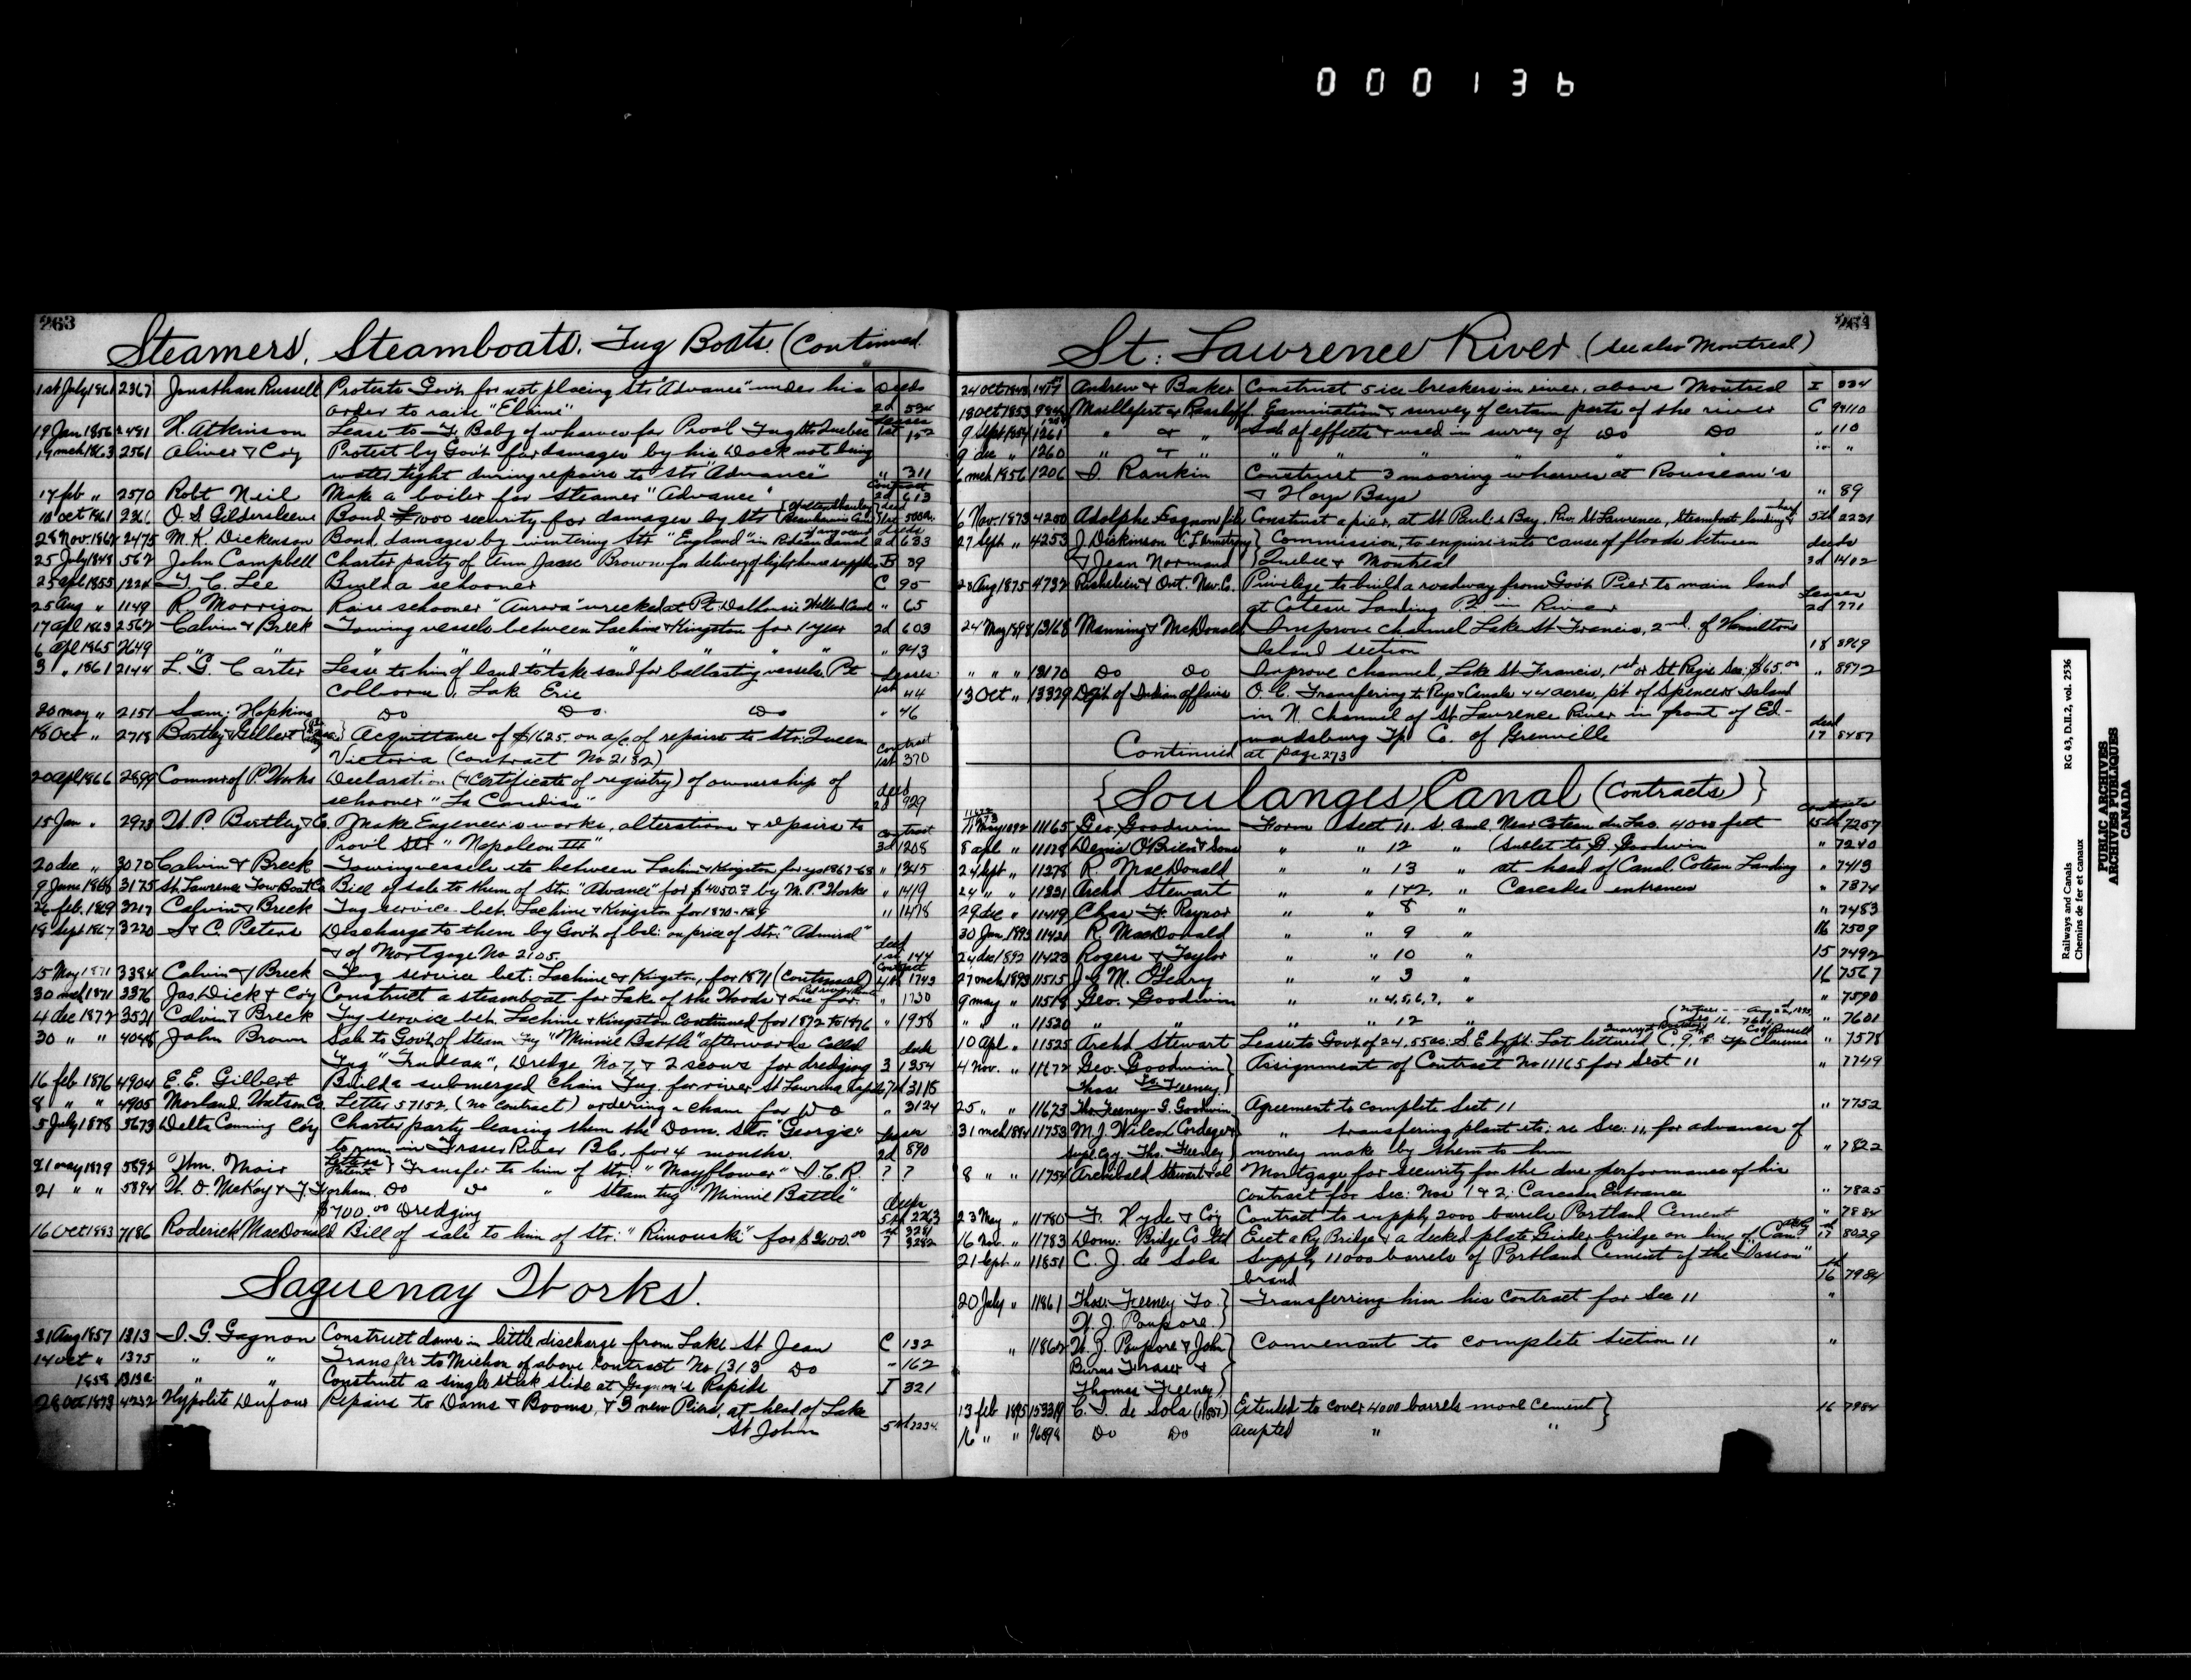 000136
263
Steamers, Steamboats, Tug Boats. (Continued
1st July 1861 2367 Jonathan Russell Protests Gov't for not placing Str "Advance" under his Deeds
order to raise "Elaine" 2d
19 Jan 1856 2491 H. Atkinson Lease to F. Baby of wharves for Prov'l Tug Quebec Leases 1st 152
14 mch 1863 2561 Oliver & Coy Protest by Gov't for damages by his Dock not being
water tight during repairs to Str "Advance" " 311
17 feb " 2570 Robt Neil Make a boiler for Steamer "Advance" Contract 2d 613
10 Oct 1861 O. S Gildersleeve Bond £1000 security for damages by Str
28 Nov. 1862 2475 M. K. Dickenson Bond, damages by wintering Str "England" in Rideau Canal 2d 633
25 July 1848 562 John Campbell Charter party of Ann Jane Brown for delivery of light house supplies B 39
25 apl 1855 1224 T. C. Lee Build a schooner C 95
25 Aug " 1149 R. Morrison Raise schooner "Aurora" wrecked at Pt Dalhousie Welland Canal " 65
17 apl 1863 2562 Calvin & Breck Towing vessels between Lachine & Kingston for 1 year 2d 603
6 apl 1865 2649 " " " " " " 943
3 " 1861 2144 L. G. Carter Lease to him of land to take sand for ballasting vessels Pt Leases
Colborne, Lake Erie 1st 44
20 may " 2151 Sam: Hopkins Do Do. Do " 46
18 Oct " 2718 Bartley & Gilbert } Acquittance of $1625 on a/c of repairs to Str: Queen
Victoria (Contract No 2182) Contract 1st 370
20 apl 1866 2899 Commr of P. Works Declaration (& Certificate of registry) of ownership of
schooner "La Canadien" deed 2d 929
15 Jan " 2973 W. P. Bartley & Co. Make Engineer's works, alterations & repairs to Contract
Prov'l Str "Napoleon III" 3d 1208
20 dec " 3070 Calvin & Breck Towing vessels etc between Lachine & Kingston for yr 1867-68 " 1345
9 June 1868 3175 St. Lawrence Tow Boat Co Bill of sale to them of Str. "Advance" for $4050 by M. P. Works " 1419
26 feb. 1869 3217 Calvin & Breck Tug service bet. Lachine & Kingston for 1870-189 " 1478
18 Sept 1867 3220 S & C. Peters Discharge to them by Gov't of bal: on price of Str. "Admiral"
& of Mortgage No 2105. deed 1st 144
15 May 1871 3384 Calvin & Breck Tug service bet: Lachine & Kingston, for 1871 (Continued) Contract 4th 1743
30 mch 1871 3376 Jas. Dick & Coy Construct a steamboat for Lake of the Woods & one for " 1730
4 dec 1872 3521 Calvin & Breck Tug service bet. Lachine & Kingston Continued for 1872 to 1876 " 1958
30 " " 4048 John Brown Sale to Gov't of Steam Tug "Minnie Battle" afterwards Called
Tug "Trudeau", Dredge No 7 & 2 scows for dredging 3 1354
16 feb 1876 4904 E. E. Gilbert Build a submerged chain Tug, for river St Lawrence rapids 7th 3115
8 " " 4905 Morland, Watson Co. Letter 57152, (no contract) ordering a chain for Do " 3124
5 July 1878 5673 Delta Canning Coy Charter party leasing them the Dom. Str. "Georgia"
to run in Fraser River B.C. for 4 months. 2d 890
21 may 1879 5892 Wm. Moir Letters Patent } Transfer to him of Str. "Mayflower" I. C. R. ? ?
21 " " 5894 W. O. McKay & J. Horham. Do Do " Steam tug "Minnie Battle"
$700.00 Dredging Deeds 5th 2263
16 Oct 1883 7186 Roderick MacDonald Bill of sale to him of Str. "Rimouski" for $3600.00 7 3282
Saguenay Works.
31 Aug 1857 1313 I. G. Gagnon Construct dams in little discharge from Lake St Jean C 132
14 Oct " 1375 " " Transfer to Michon of above Contract No 1313 Do " 162
1858 " " Construct a single stick slide at Gagnon's Rapids I 321
28 Oct 1873 4232 Hypolite Dufour Repairs to Dams & Booms, & 3 new Piers, at head of Lake
St John 5th 2234
264
St. Lawrence River. (see also Montreal)
24 Oct 1848 Andrew & Baker Construct 5 ice breakers in river, above Montreal I 334
18 Oct 1853 Maillefert & Raasloff. Examination & survey of certain parts of the river C
9 Sept 1854 1261 " & " Sale of effects & used in survey of Do Do " 110
9 dec " 1260 " & " " " " " " "
6 mch 1856 1206 D. Rankin Construct 3 mooring wharves at Rousseau's
& Hoyr Bays " 89
6 Nov. 1873 4200 Adolphe Gagnon fils Construct a pier, at St Paul's Bay, Riv. St Lawrence, Steamboat landing wharf 5th 2231
27 Sept " 4253 J. Dickinson C. L. Armstrong } Commission, to enquire into cause of floods between deeds
& Jean Normand } Quebec & Montreal 3d 1402
23 Aug 1875 4732 Richelieu & Ont. Nav. C. Privilege to build a roadway from Gov't Pier to main land
at Coteau Landing P.Q. in River Leases 2d 771
24 May 1898 13168 Manning & McDonald Improve Channel Lake St Francis, 2nd. of Hamilton's
Island section 18 8969
" " " 13170 Do Do Improve Channel, Lake St Francis, 1st or St Regis Sec: $65.00 " 8972
13 Oct " 13329 Dep't of Indian affairs O. C. Transfering to Rys & Canals 44 acres, pt of Spencer's Island
in N. Channel of St. Lawrence River in front of Ed-
wardsburg Tp. Co. of Grenville deed 17 8457
Continued at page 273
{ Soulanges Canal (Contracts) }
11 May 1892 11165 Geo. Goodwin Form Sect 11. S. Canl. Near Coteau du Lac. 4000 feet Contracts 15th 7207
8 apl " 11128 Denis O'Brien & Sons " " 12 " (Sublet to G. Goodwin " 7240
24 Sept " 11278 R. MacDonald " " 13 " at head of Canal Coteau Landing " 7413
24 " " 11331 Archd Stewart " " 1&2. " Cascades entrance " 7374
29 dec " 11419 Chas F. Raynor " " 8 " " 7483
30 Jan 1893 11421 R. MacDonald " " 9 " 16 7509
24 dec 1892 11423 Rogers & Taylor " " 10 " 15 7492
27 mch 1893 11515 J. & M. O'Leary " " 3 " 16 7567
9 may " 11519 Geo. Goodwin " " 4, 5, 6, 7, " " 7590
" " " 11520 " " " " 12 " " 7601
10 Apl. " 11525 Archd Stewart Lease to Gov't of 24,55ac. S E by pt. Lot lettered C. 9. Tp Clarence " 7578
4 Nov. " 11672 Geo. Goodwin } Assignment of Contract No 11165 for Sect 11 " 7749
Thos Feeney }
25 " " 11673 Tho. Feeney - G. Goodwin Agreement to complete Sect 11 " 7752
31 mch 1894 11753 M. J. Wilcox Cordage & " transfering plant etc. re Sec: 11, for advances of
Supl. Coy. Tho. Feeney money make by them to him " 7822
8 " " 11754 Archibald Stewart & al Mortgage for security for the due performance of his
Contract for Sec: Nos 1 & 2. Cascades Entrance " 7825
23 May " 11780 F. Hyde & Coy Contract to supply 2000 barrels Portland Cement " 7884
16 Nov. " 11783 Dom. Bridge Co Ltd Erect a Ry Bridge & a decked plate Girder bridge on line of Canl 17 8029
21 Sept " 11851 C. J. de Sola Supply 11000 barrels of Portland Cement of the "Dosson"
brand 16 7984
20 July " 11861 Thos. Feeney To } Transferring him his contract for Sec 11 "
W. J. Poupore. }
" 11862 W. J. Poupore & John } Convenant to complete Section 11 "
Burns Fraser & }
Thomas Feeney }
13 feb 1895 153319 C. I. de Sola (11851) Extended to cover 4000 barrels more cement } 16 7984
16 " " 96898 Do Do accepted " "
Railways and Canals RG 43, D.II.2, vol. 2536
Chemins de fer et canaux
PUBLIC ARCHIVES
ARCHIVES PUBLIQUES
CANADA